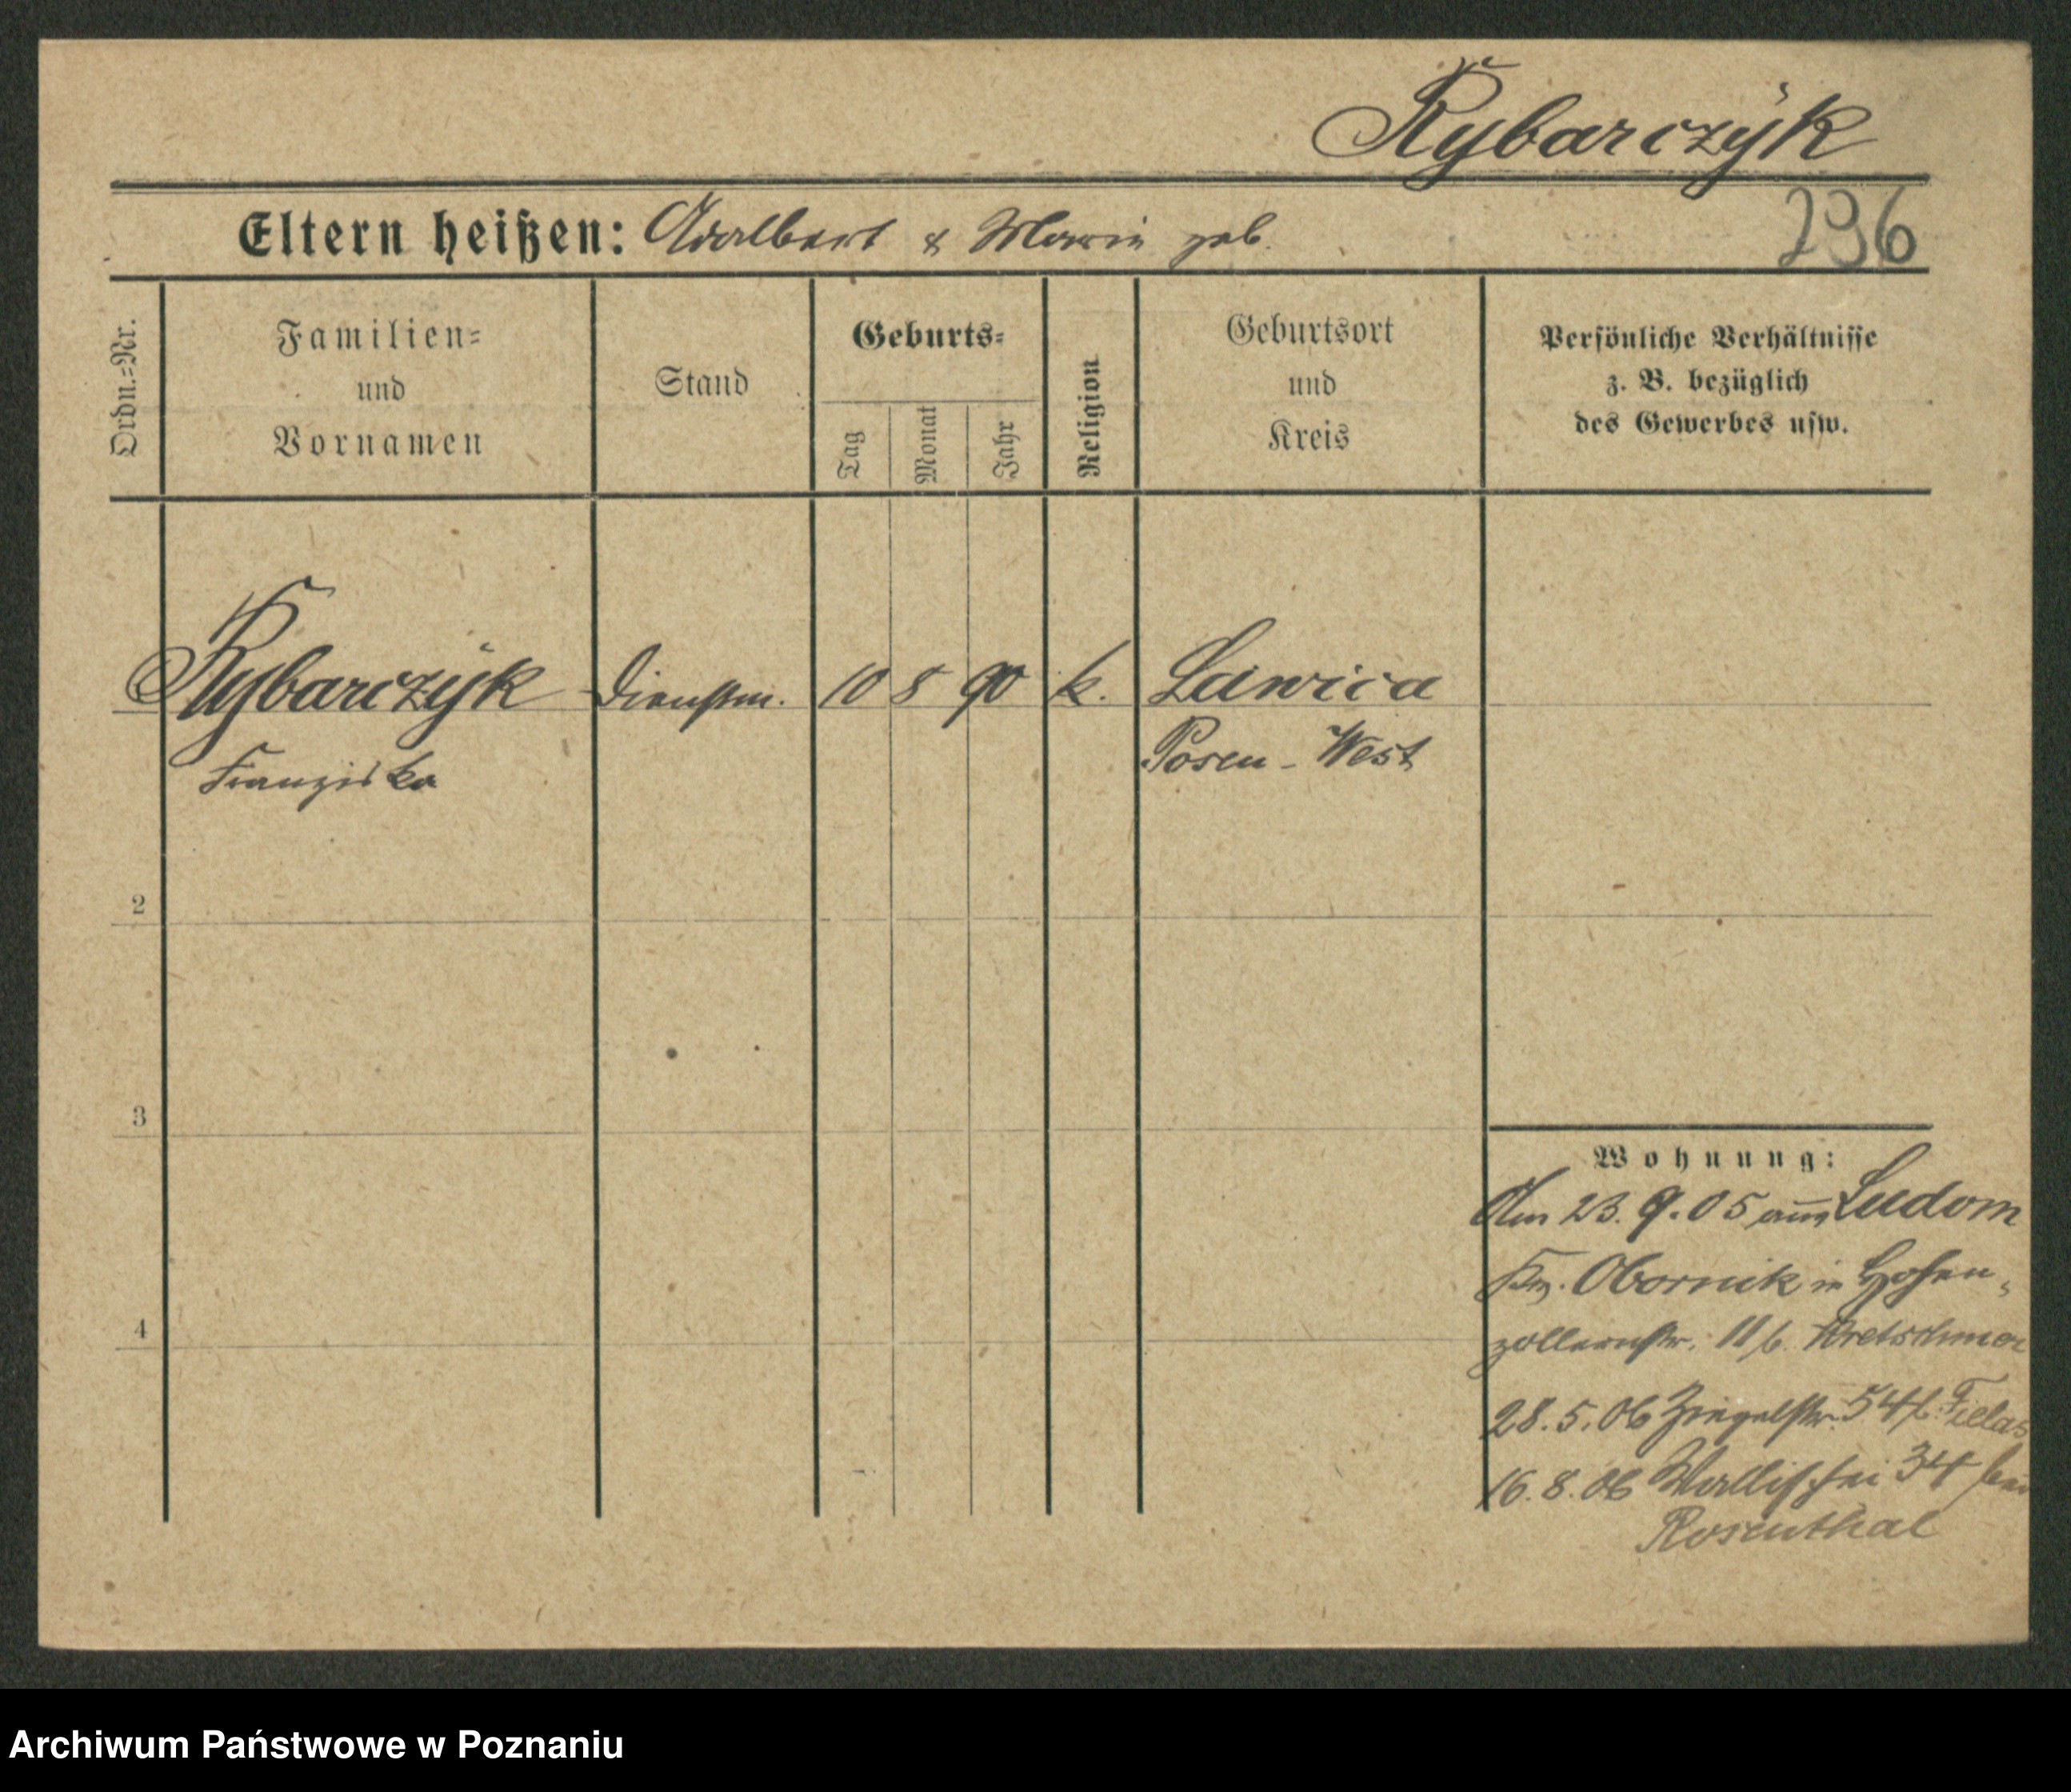 Rybarczyk
Eltern heißen: Adalbert & Marie geb.
296
Ordn.-Nr.
Familien-
und
Vornamen
Stand
Geburts-
Tag
Monat
Jahr
Religion
Geburtsort
und
Kreis
Persönliche Verhältnisse
z. B. bezüglich
des Gewerbes usw.
Rybarczyk Dienstm. 10 8 90 k. Lawica
Franziska
Posen-West
2
3
4
Wohnung:
Am 23.9.05 aus Ludom
Krs. Obornik in Hohen-
zollernstr. 11 b. Kretschmer
28.5.06 Ziegelstr. 54 b.
16.8.06 Wallischei 34 bei
Rosenthal
Archiwum Państwowe w Poznaniu